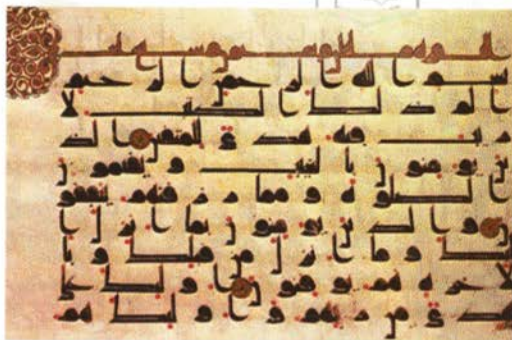 بسم الله الرحمن الرحيم
الم ذلك الكتب لا
ريب فيه هدى للمتقين الذ
ين يومنون بالغيب ويقيمون
الصلوة ومما رزقنهم ينفقو
ن والذين يومنون بما انزل ا
ليك وما انزل من قبلك وبا
لاخرة هم يوقنون اولئك على
هدى من ربهم واولئك هم